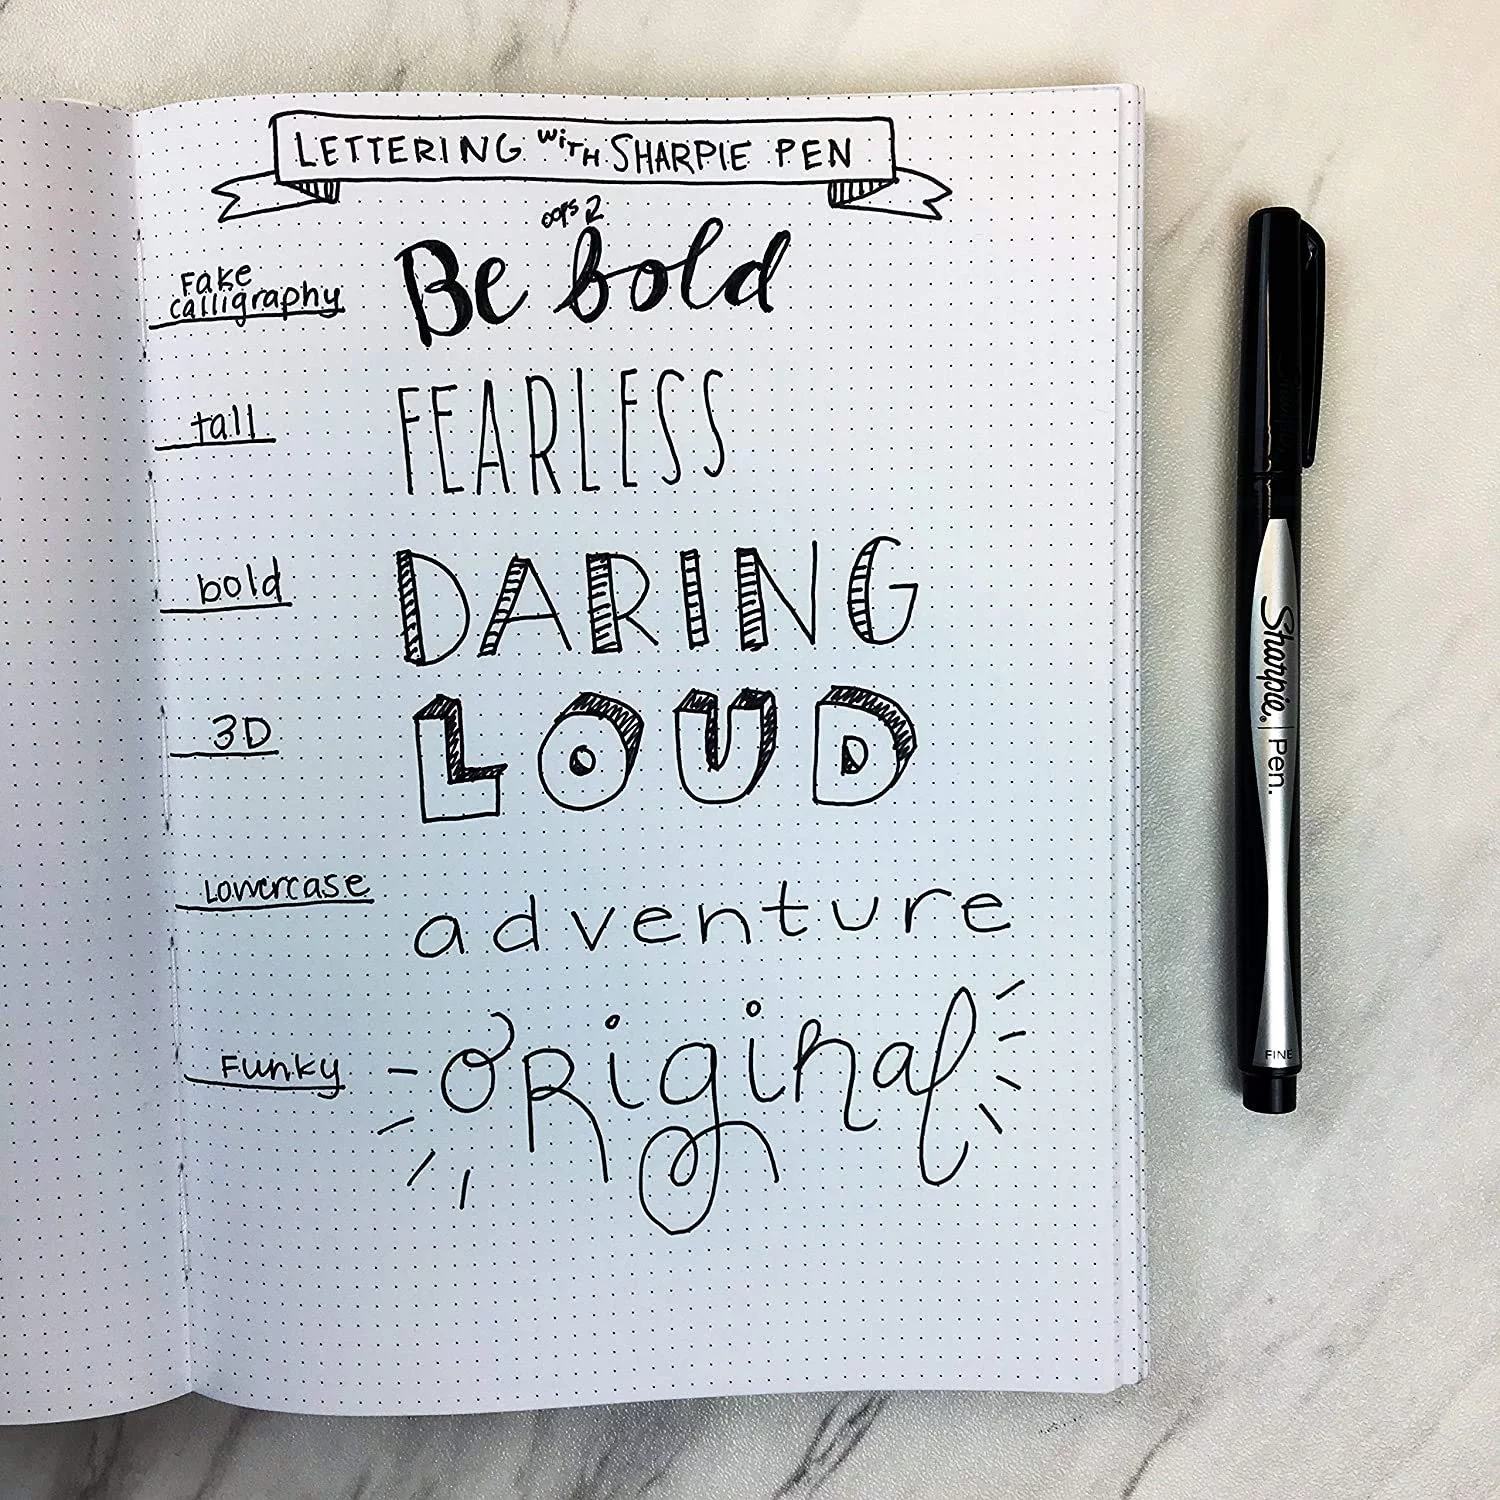 LETTERING WITH SHARPIE PEN
oops
Fake
calligraphy
Be bold
tall
FEARLESS
bold
DARING
3D
LOUD
Lowercase
adventure
Funky
ORiginal
Sharpie® Pen.
FINE